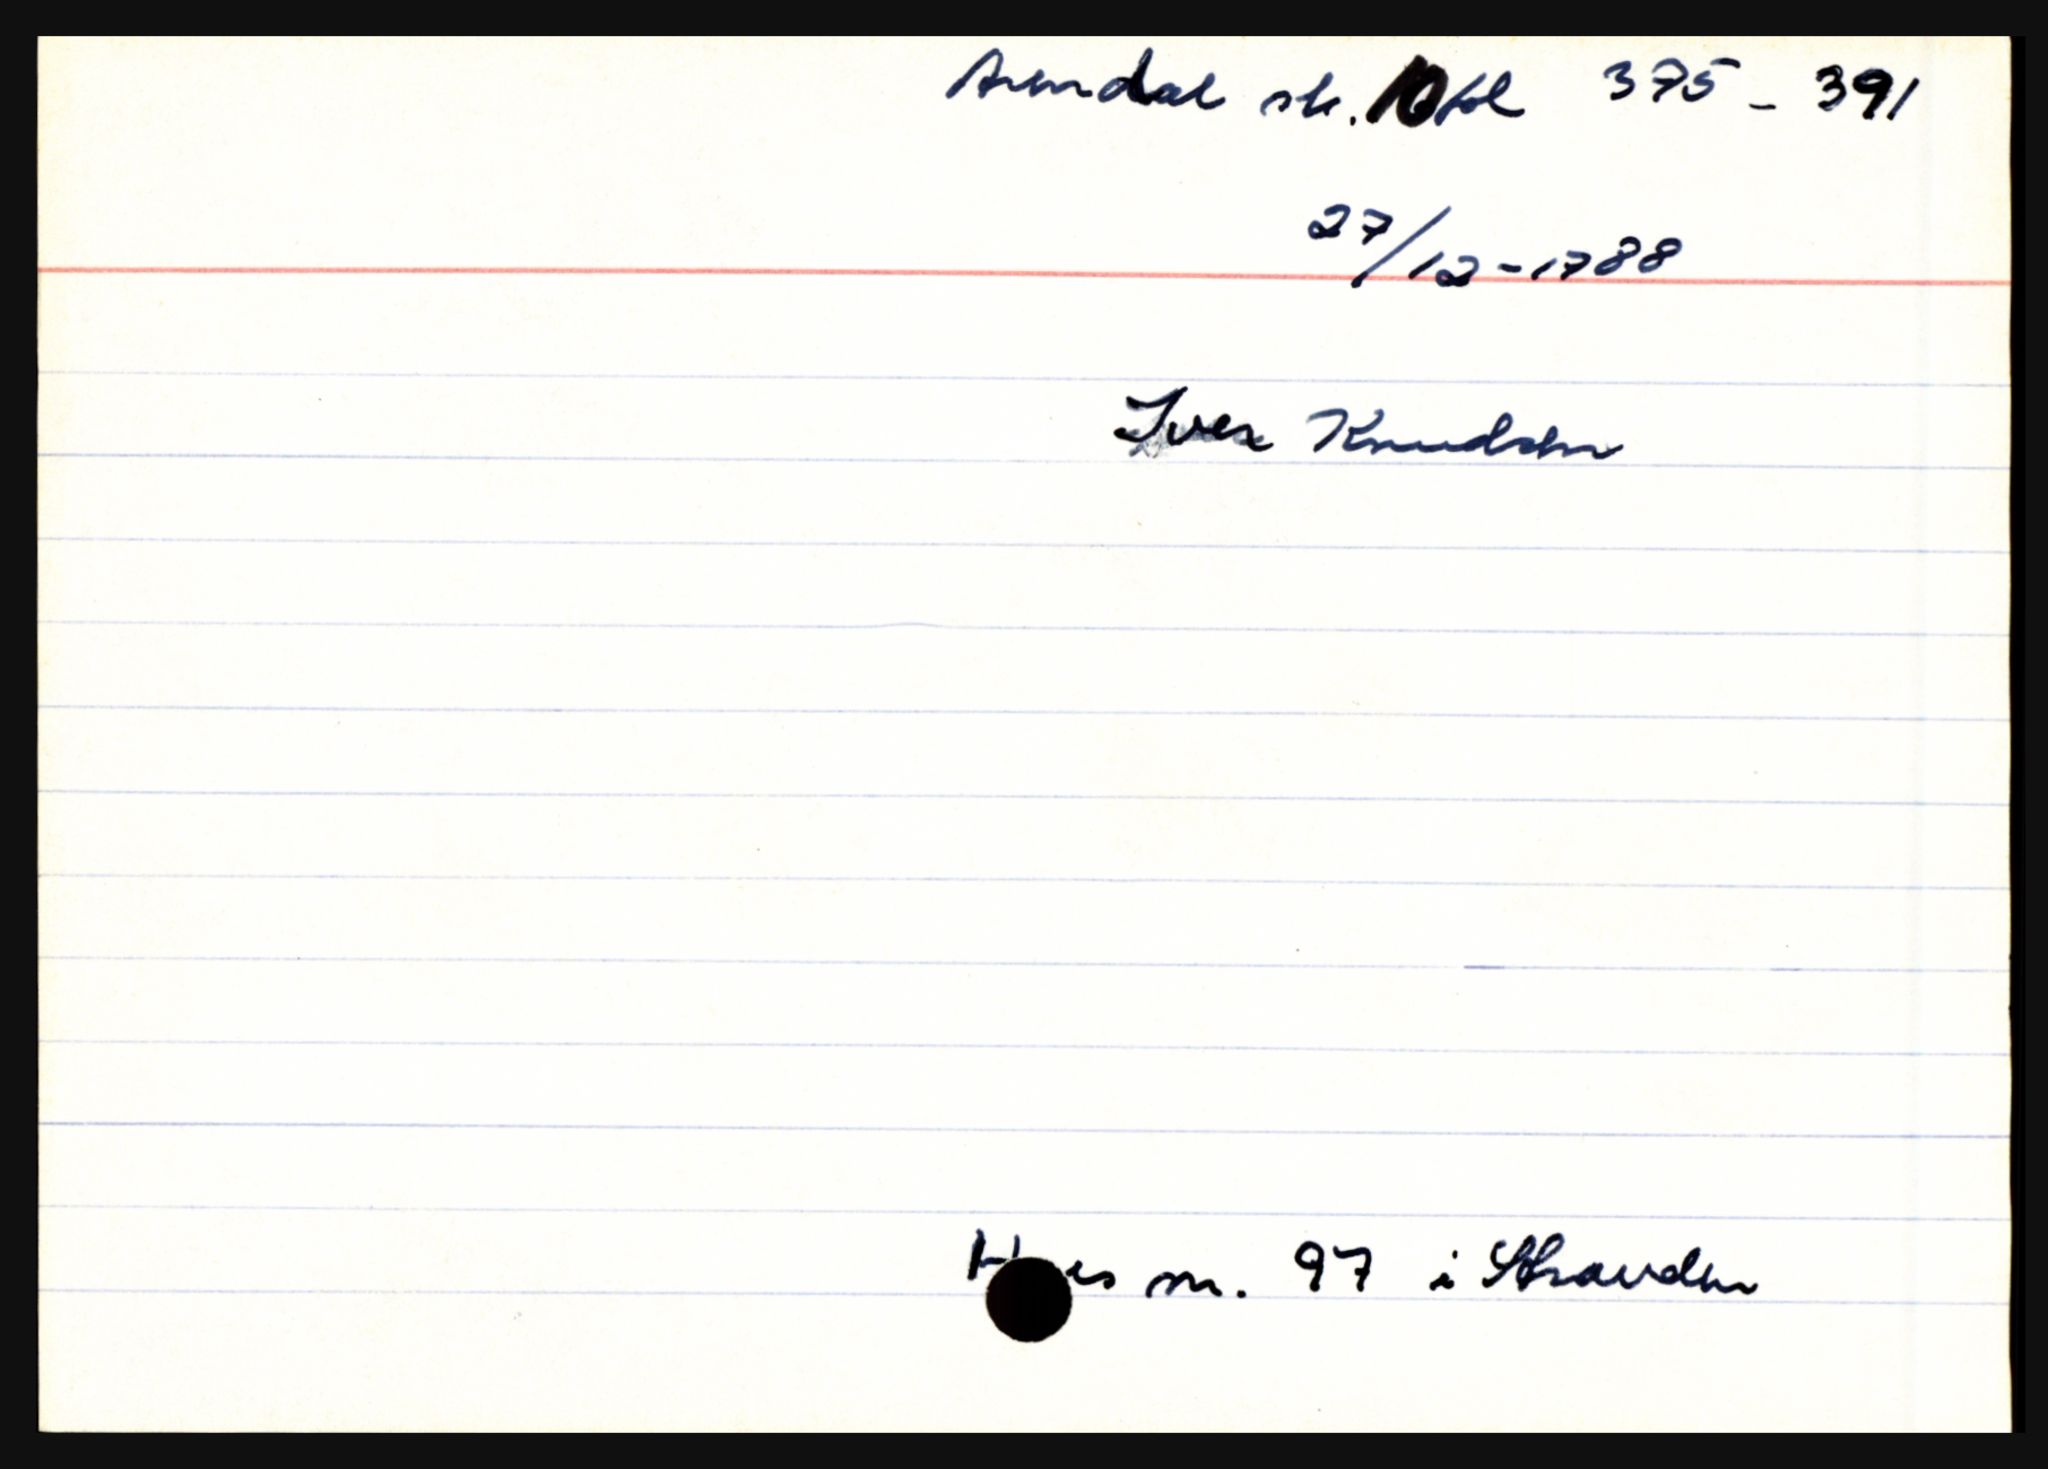 Arendal sk. 10 fol 375 - 391
27/12-1788
Iver Knudsen
Hus nr. 97 i Stranden